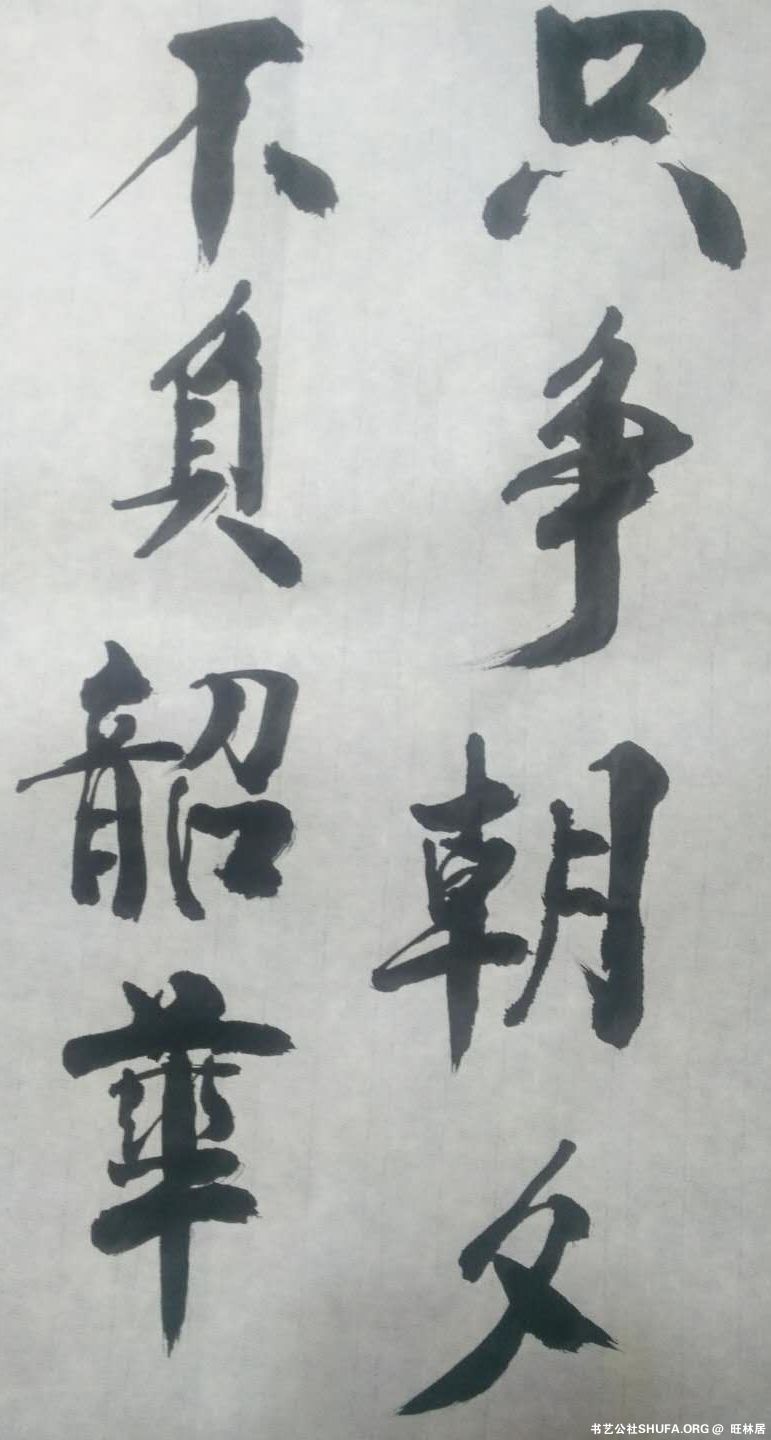 只争朝夕
不負韶華
书艺公社SHUFA.ORG @ 旺林居